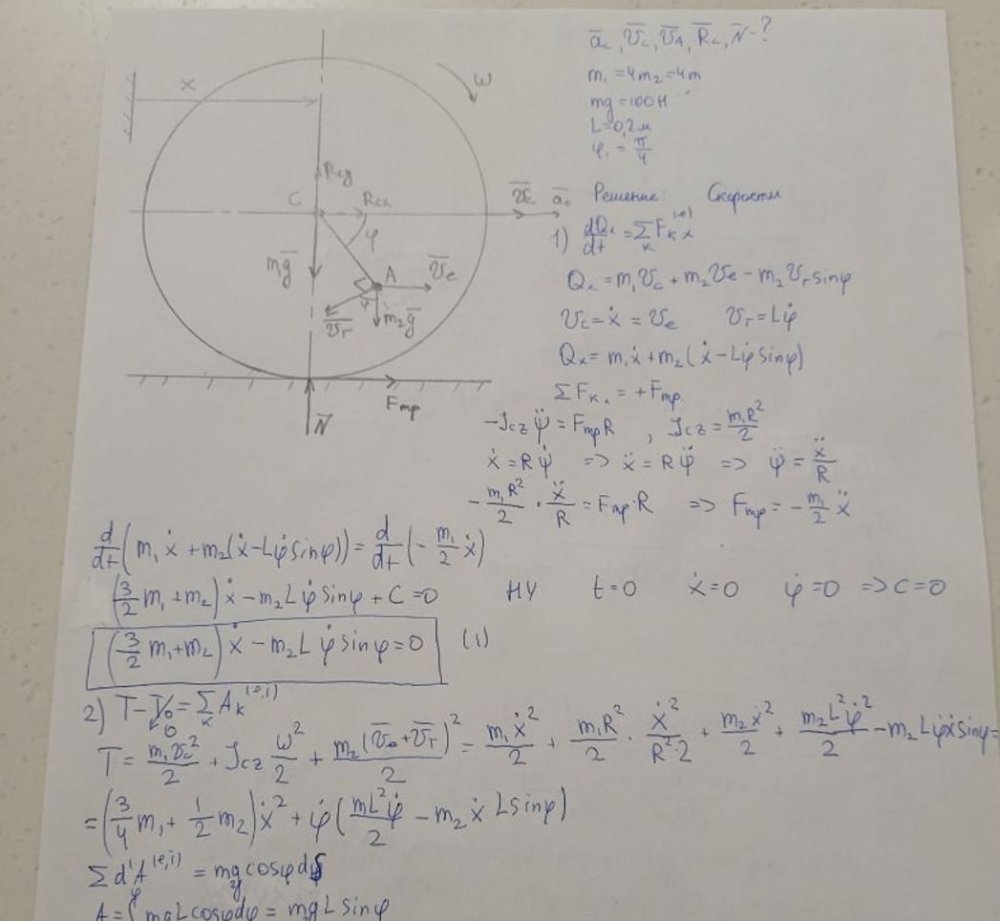 x
ω
R_cy
C
R_cx
v̄_c
ā_c
φ
mḡ
A
v̄_e
φ
v̄_r
m₂ḡ
F_тр
N̄
ā_c, v̄_c, v̄_A, R̄_c, N̄ - ?
m₁ = 4m₂ = 4m
mg = 100 Н
L = 0,2 м
φ₁ = π/4
Решение: Скорости
1) dQₓ/dt = Σ_k F_kx^(e)
Qₓ = m₁v_c + m₂v_e − m₂v_r sinφ
v_c = ẋ = v_e v_r = Lφ̇
Qₓ = m₁ẋ + m₂(ẋ − Lφ̇ sinφ)
ΣF_kx = +F_тр.
−J_cz ψ̈ = F_тр R , J_cz = m₁R²/2
ẋ = Rψ̇ => ẍ = Rψ̈ => ψ̈ = ẍ/R
−m₁R²/2 · ẍ/R = F_тр·R => F_тр = −m₁/2 ẍ
d/dt(m₁ẋ + m₂(ẋ − Lφ̇ sinφ)) = d/dt(−m₁/2 ẋ)
(3/2 m₁ + m₂)ẋ − m₂Lφ̇ sinφ + C = 0 НУ t = 0 ẋ = 0 φ̇ = 0 => C = 0
(3/2 m₁ + m₂)ẋ − m₂Lφ̇ sinφ = 0 (1)
2) T − T₀ = Σ_k A_k^(e,i)
0
T = m₁v_c²/2 + J_cz ω²/2 + m₂(v̄_e + v̄_r)²/2 = m₁ẋ²/2 + m₁R²/2 · ẋ²/R²·2 + m₂ẋ²/2 + m₂L²φ̇²/2 − m₂Lφ̇ẋ sinφ =
= (3/4 m₁ + 1/2 m₂)ẋ² + φ̇(mL²φ̇/2 − m₂ẋ L sinφ)
Σd'A^(e,i) = mg cosφ d
A = ∫^φ mgL cosφ dφ = mgL sinφ